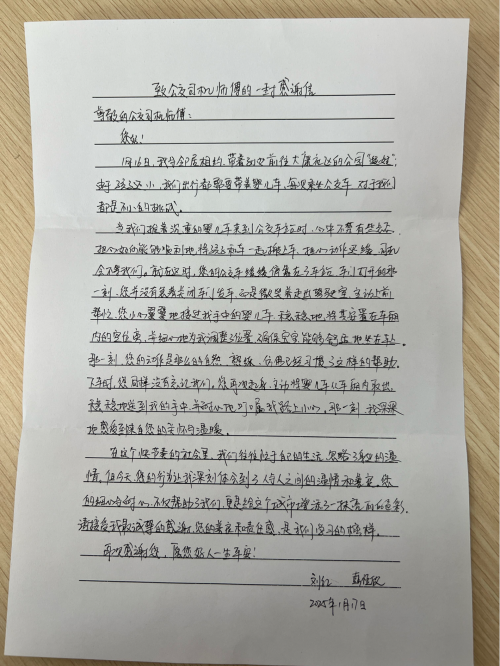 致公交司机师傅的一封感谢信
尊敬的公交司机师傅：
您好！
1月16日，我与邻居相约，带着孩子前往大康社区的公园“遛娃”，
由于孩子还小，我们出行都需要带着婴儿车，每次乘坐公交车对于我们
都是不小的挑战。
当我们推着沉重的婴儿车来到公交车站时，心中不禁有些忐忑，
担心如何能够顺利地将孩子和车一起搬上车，担心动作迟缓，司机
会不等我们。就在这时，您的公交车缓缓停靠在了车站，车门打开的那
一刻，您并没有急着关闭车门发车，而是微笑着走出驾驶室，主动上前
帮忙。您小心翼翼地接过我手中的婴儿车，稳稳地将其安置在车厢
内的空位处，并细心地为我调整位置，确保宝宝能够舒适地坐在车上。
那一刻，您的动作是那么的自然、熟练，仿佛已经习惯了这样的帮助。
下车时，您同样没有忘记我们，您再次起身，主动将婴儿车从车厢内取出，
稳稳地送到我的手中，并耐心地叮嘱我路上小心。那一刻，我深深
地感受到来自您的关怀与温暖。
在这个快节奏的社会里，我们往往忙于自己的生活，忽略了身边的温
情，但今天，您的行为让我深刻体会到了人与人之间的温情和善意，您
的细心与耐心，不仅帮助了我们，更是给这个城市增添了一抹亮丽的色彩。
请接受我最诚挚的感谢，您的善良和责任感，是我们学习的榜样。
再次感谢您，愿您好人一生平安！
刘红
2025年1月17日